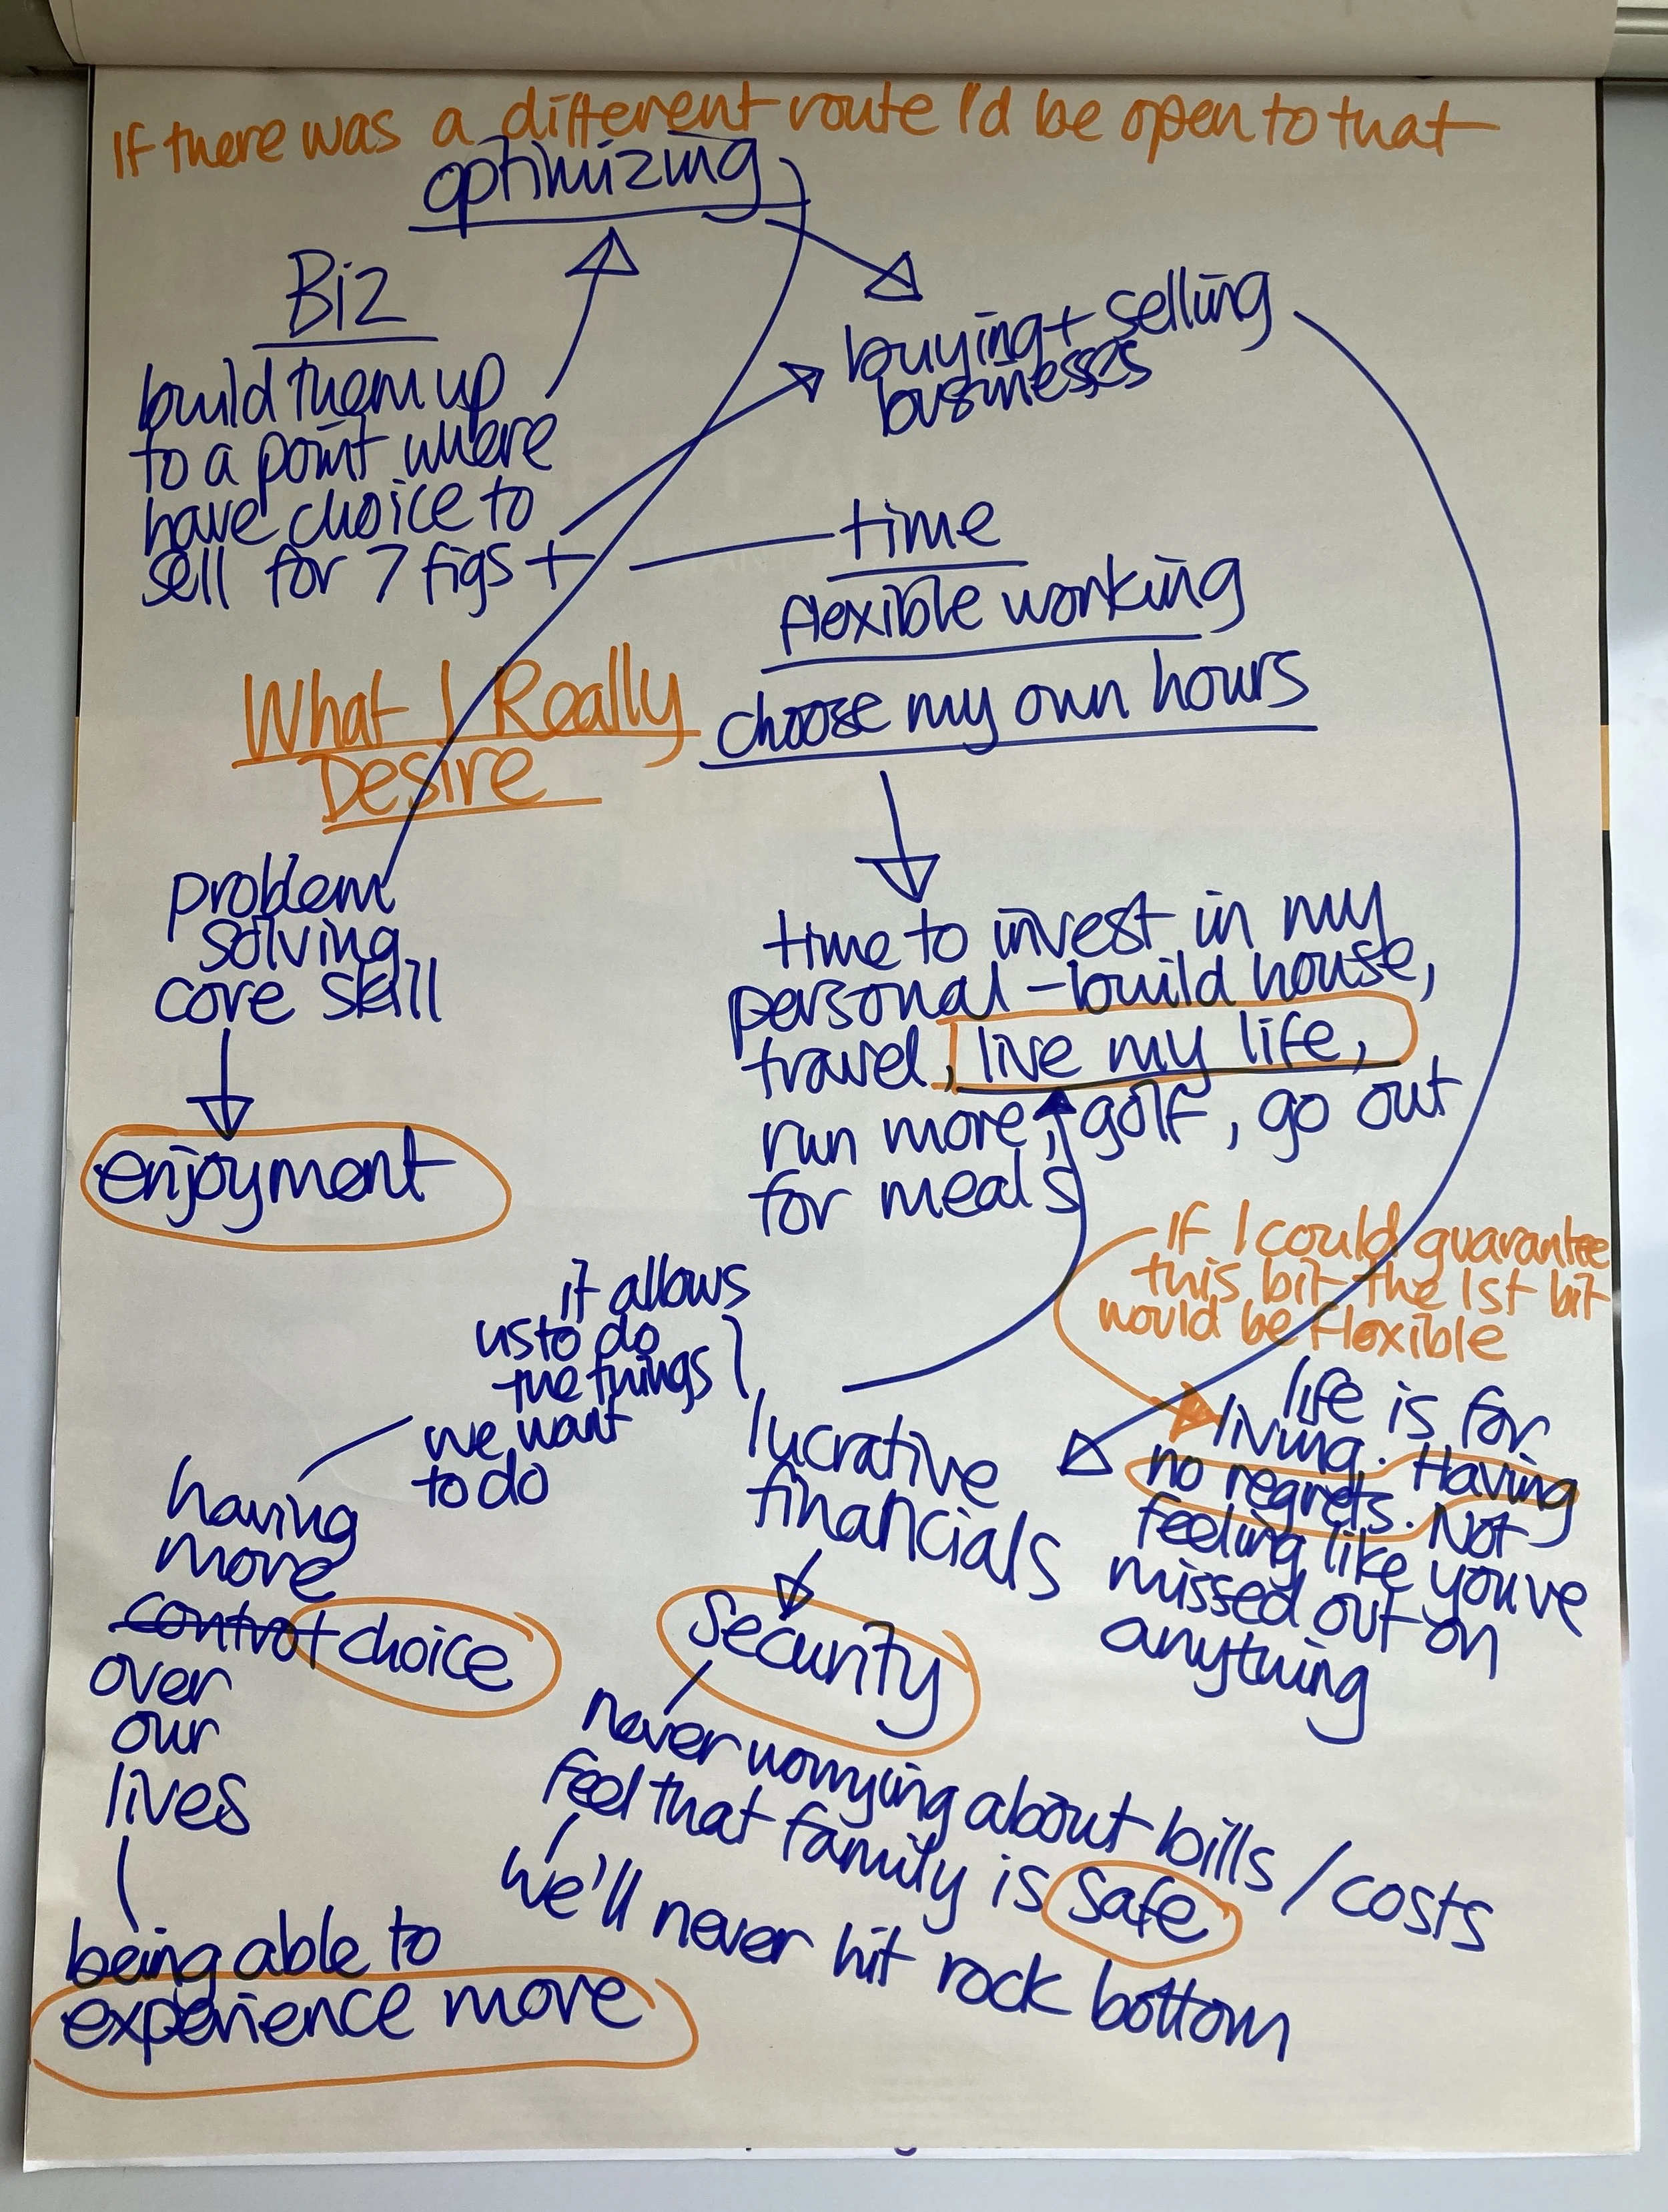 If there was a different route I'd be open to that
optimizing
Biz
build them up
to a point where
have choice to
sell for 7 figs +
buying + selling
businesses
time
flexible working
choose my own hours
What I Really
Desire
problem
solving
core skill
enjoyment
time to invest in my
personal - build house,
travel, live my life,
run more, golf, go out
for meals
If I could guarantee
this bit the 1st bit
would be flexible
it allows
us to do
the things
we want
to do
having
more
control choice
over
our
lives
being able to
experience more
lucrative
financials
security
never worrying about bills / costs
feel that family is safe
we'll never hit rock bottom
life is for
living. Having
no regrets. Not
feeling like you've
missed out on
anything